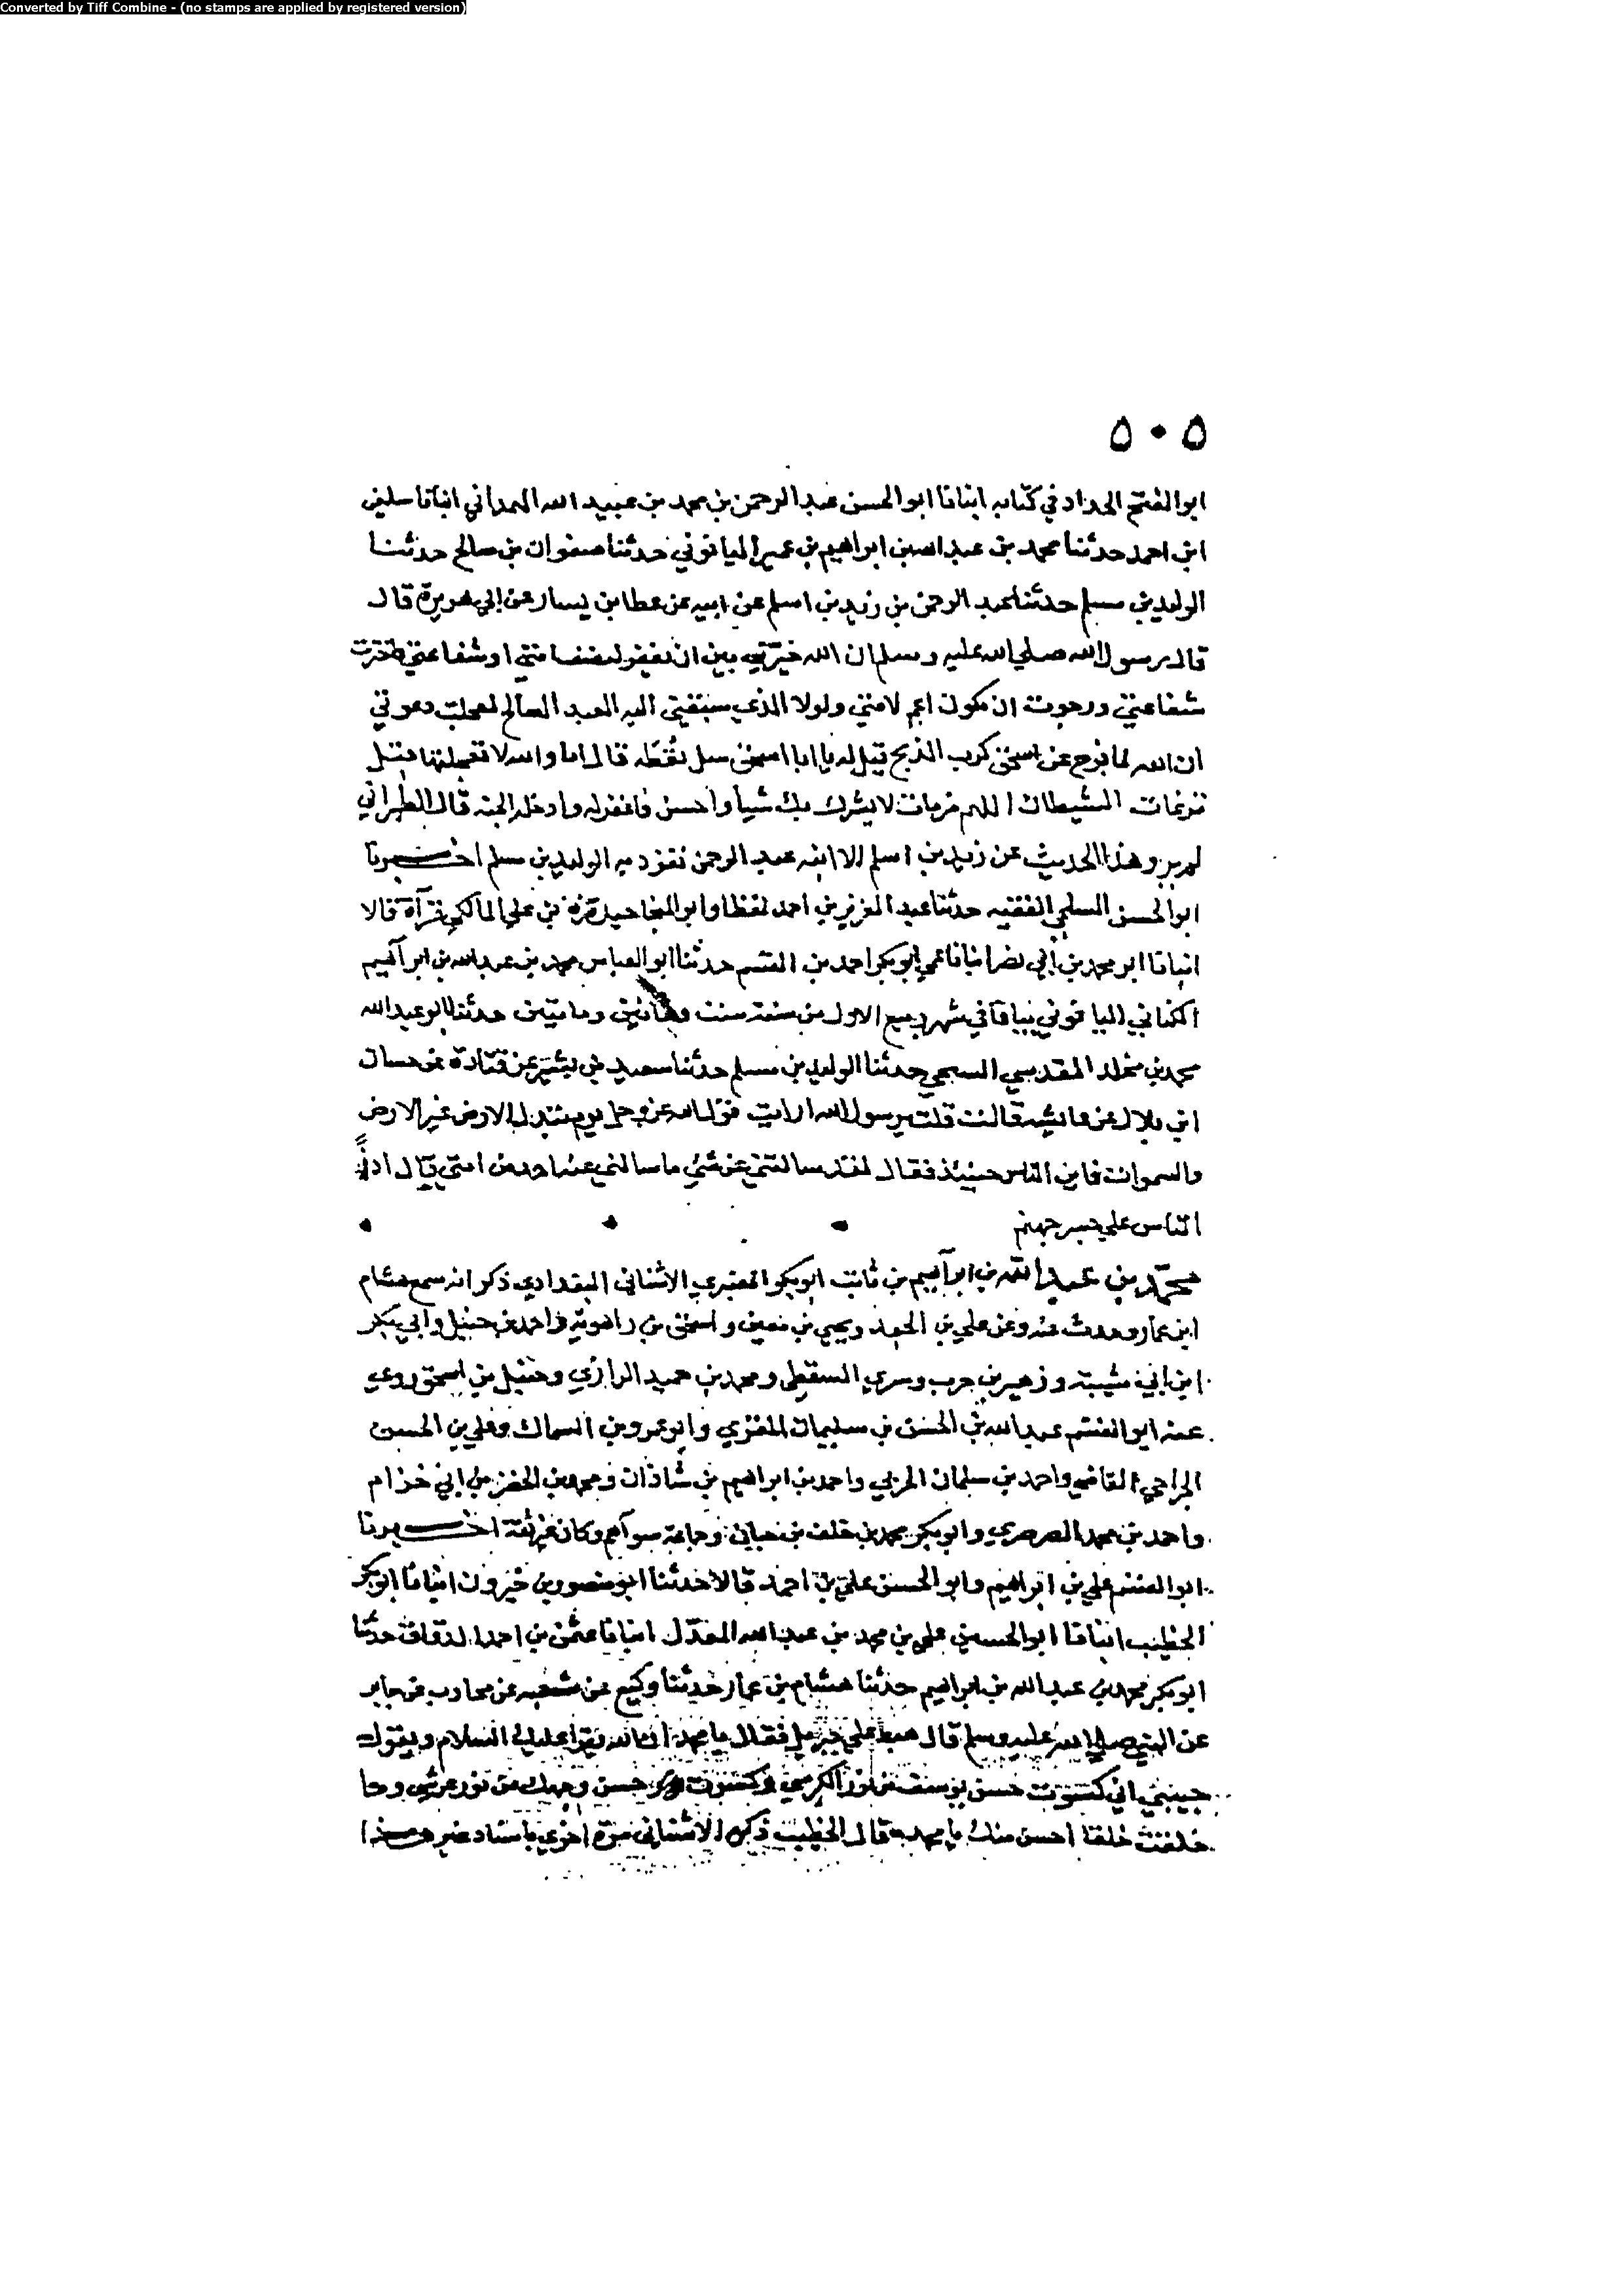 Converted by Tiff Combine - (no stamps are applied by registered version)
٥٠٥
ابو الفتح الحداد في كتابه انبانا ابو الحسن عبد الرحمن بن محمد بن عبيد الله الهمداني انبانا سليمن
ابن احمد حدثنا محمد بن عبد الله بن ابراهيم بن عمير اليافوني حدثنا صفوان بن صالح حدثنا
الوليد بن مسلم حدثنا عبد الرحمن بن زيد بن اسلم عن ابيه عن عطا بن يسار عن ابي هريرة قال
قال رسول الله صلي الله عليه وسلم ان الله خيرني بين ان يغفر لنصف امتي او شفاعتي فاخترت
شفاعتي ورجوت ان تكون اعم لامتي ولولا الذي سبقني اليه العبد الصالح لعجلت دعوتي
ان الله لما فرج عن اسحق كرب الذبح قيل له يا ابا اسحق سل تعطه قال اما والله لاتعجلنها قبل
نزغات الشيطان اللهم من مات لا يشرك بك شيا واحسن فاغفر له وادخله الجنة قال الطبراني
لم يرو هذا الحديث عن زيد بن اسلم الا ابنه عبد الرحمن تفرد به الوليد بن مسلم اخبرنا
ابو الحسن السلمي الفقيه حدثنا عبد العزيز بن احمد لفظا وابو بن علي المالكي قرآة قالا
انبانا ابو محمد بن ابي نصر انبانا عمي ابو بكر احمد بن القسم حدثنا ابو العباس محمد بن عبد الله بن ابراهيم
الكناني اليافوني بيافا في شهر ربيع الاول من سنة ست وثمانين ومايتين حدثنا ابو عبد الله
محمد بن مخلد المقدسي حدثنا الوليد بن مسلم حدثنا سعيد بن بشير عن قتادة عن حسان
ابن بلال عن عايشه قالت قلت يرسول الله ارايت قول الله عز وجل يوم تبدل الارض غير الارض
والسموات فاين الناس حينيذ فقال لقد سالتني عن شي ما سالني عنه احد من امتي قال
الناس علي جسر جهنم
محمد بن عبد الله بن ابراهيم بن ثابت ابو بكر العنبري الاشناني البغدادي ذكر انه سمع هشام
ابن عمار وحدث عنه وعن علي بن الجعد ويحيي بن معين واسحق بن راهويه واحمد بن حنبل وابي بكر
ابن ابي شيبة وزهير بن حرب وسري السقطي ومحمد بن حميد الرازي وحنبل بن اسحق روي
عنه ابو القسم عبد الله بن الحسن بن سليمان المقري وابو عمرو بن السماك وعلي بن الحسن
الجراحي القاضي واحمد بن سلمان الحربي واحمد بن ابراهيم بن شاذان ومحمد بن الخضر بن ابي خزام
واحمد بن محمد الصرصري وابو بكر محمد بن خلف بن وجماعة سواهم وكان غير ثقة اخبرنا
ابو القسم علي بن ابراهيم وابو الحسن علي بن احمد قالا حدثنا ابو منصور بن خيرون انبانا ابو بكر
الخطيب انبانا ابو الحسين علي بن محمد بن عبد الله المعدل انبانا عثمن بن احمد الدقاق حدثنا
ابو بكر محمد بن عبد الله بن ابراهيم حدثنا هشام بن عمار حدثنا وكيع عن شعبه عن محارب عن جابر
عن النبي صلي الله عليه وسلم قال هبط علي جبريل فقال يا محمد ان الله يقرا عليك السلام ويقول
حبيبي اني كسوت حسن يوسف من نور الكرسي وكسوت حسن وجهك من نور عرشي وما
خلقت خلقا احسن منك يا محمد قال الخطيب ذكر الاشناني مرة اخري باسناد غير هذا